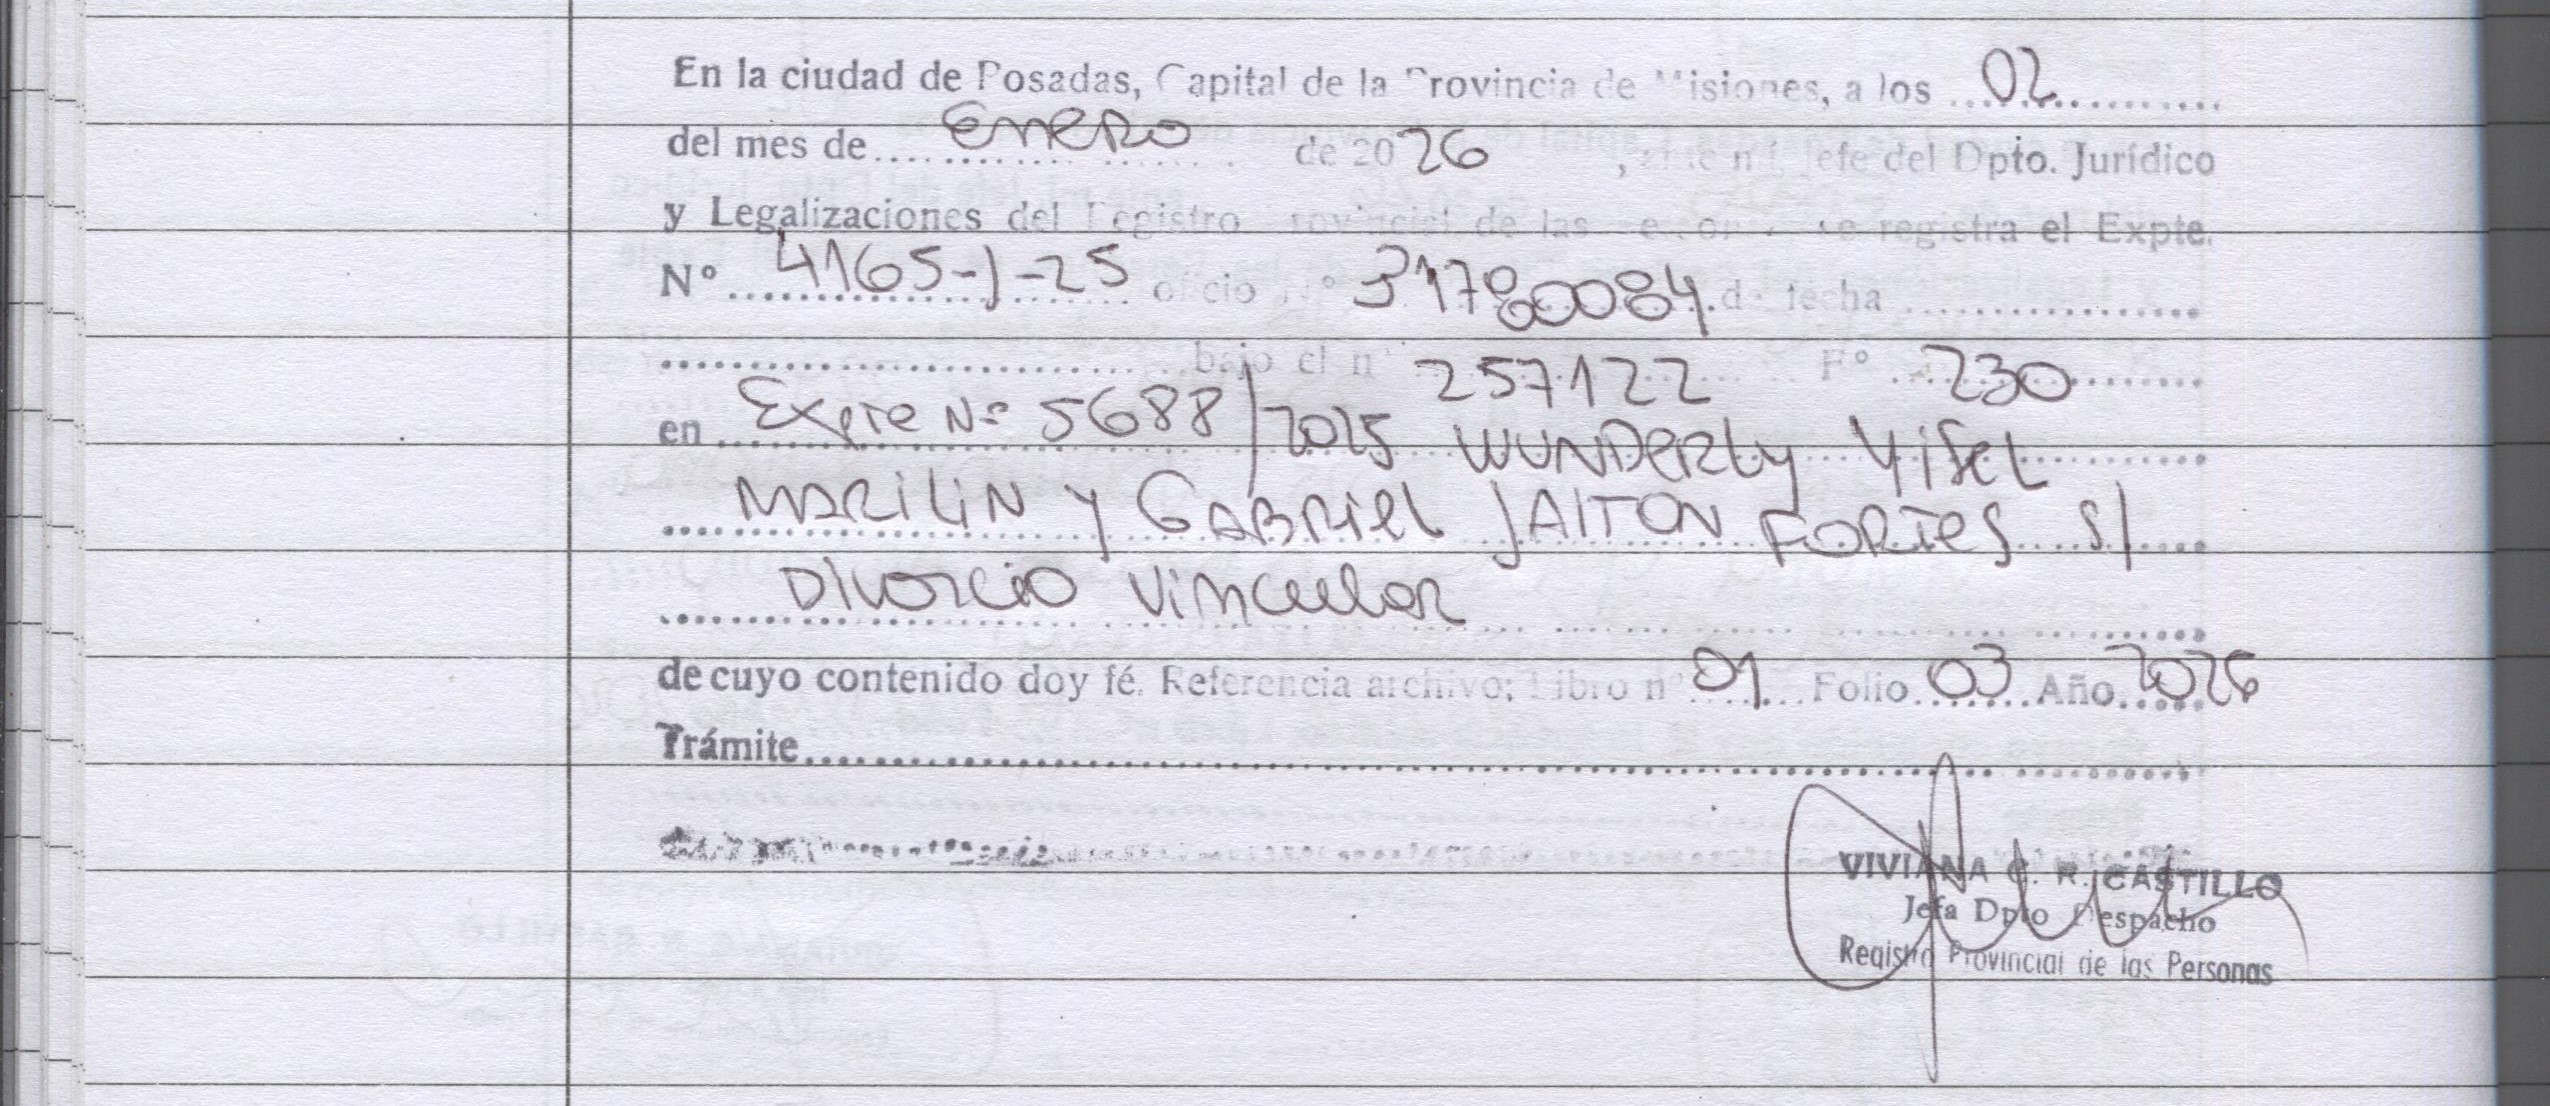 En la ciudad de Posadas, Capital de la Provincia de Misiones, a los 02
del mes de Enero de 2026, ante mí, Jefe del Dpto. Jurídico
y Legalizaciones del Registro Provincial de las Personas se registra el Expte.
Nº 4165-J-25 oficio Nº 31780084 de fecha
bajo el nº 257122 Fº 230
en Expte Nº 5688/2025 WUNDERLY Yisel
MARILIN y GABRIEL JAITON FORTES S/
Divorcio Vincular
de cuyo contenido doy fé. Referencia archivo: Libro nº 01 Folio 03 Año 2026
Trámite
VIVIANA C. R. CASTILLO
Jefa Dpto Despacho
Registro Provincial de las Personas